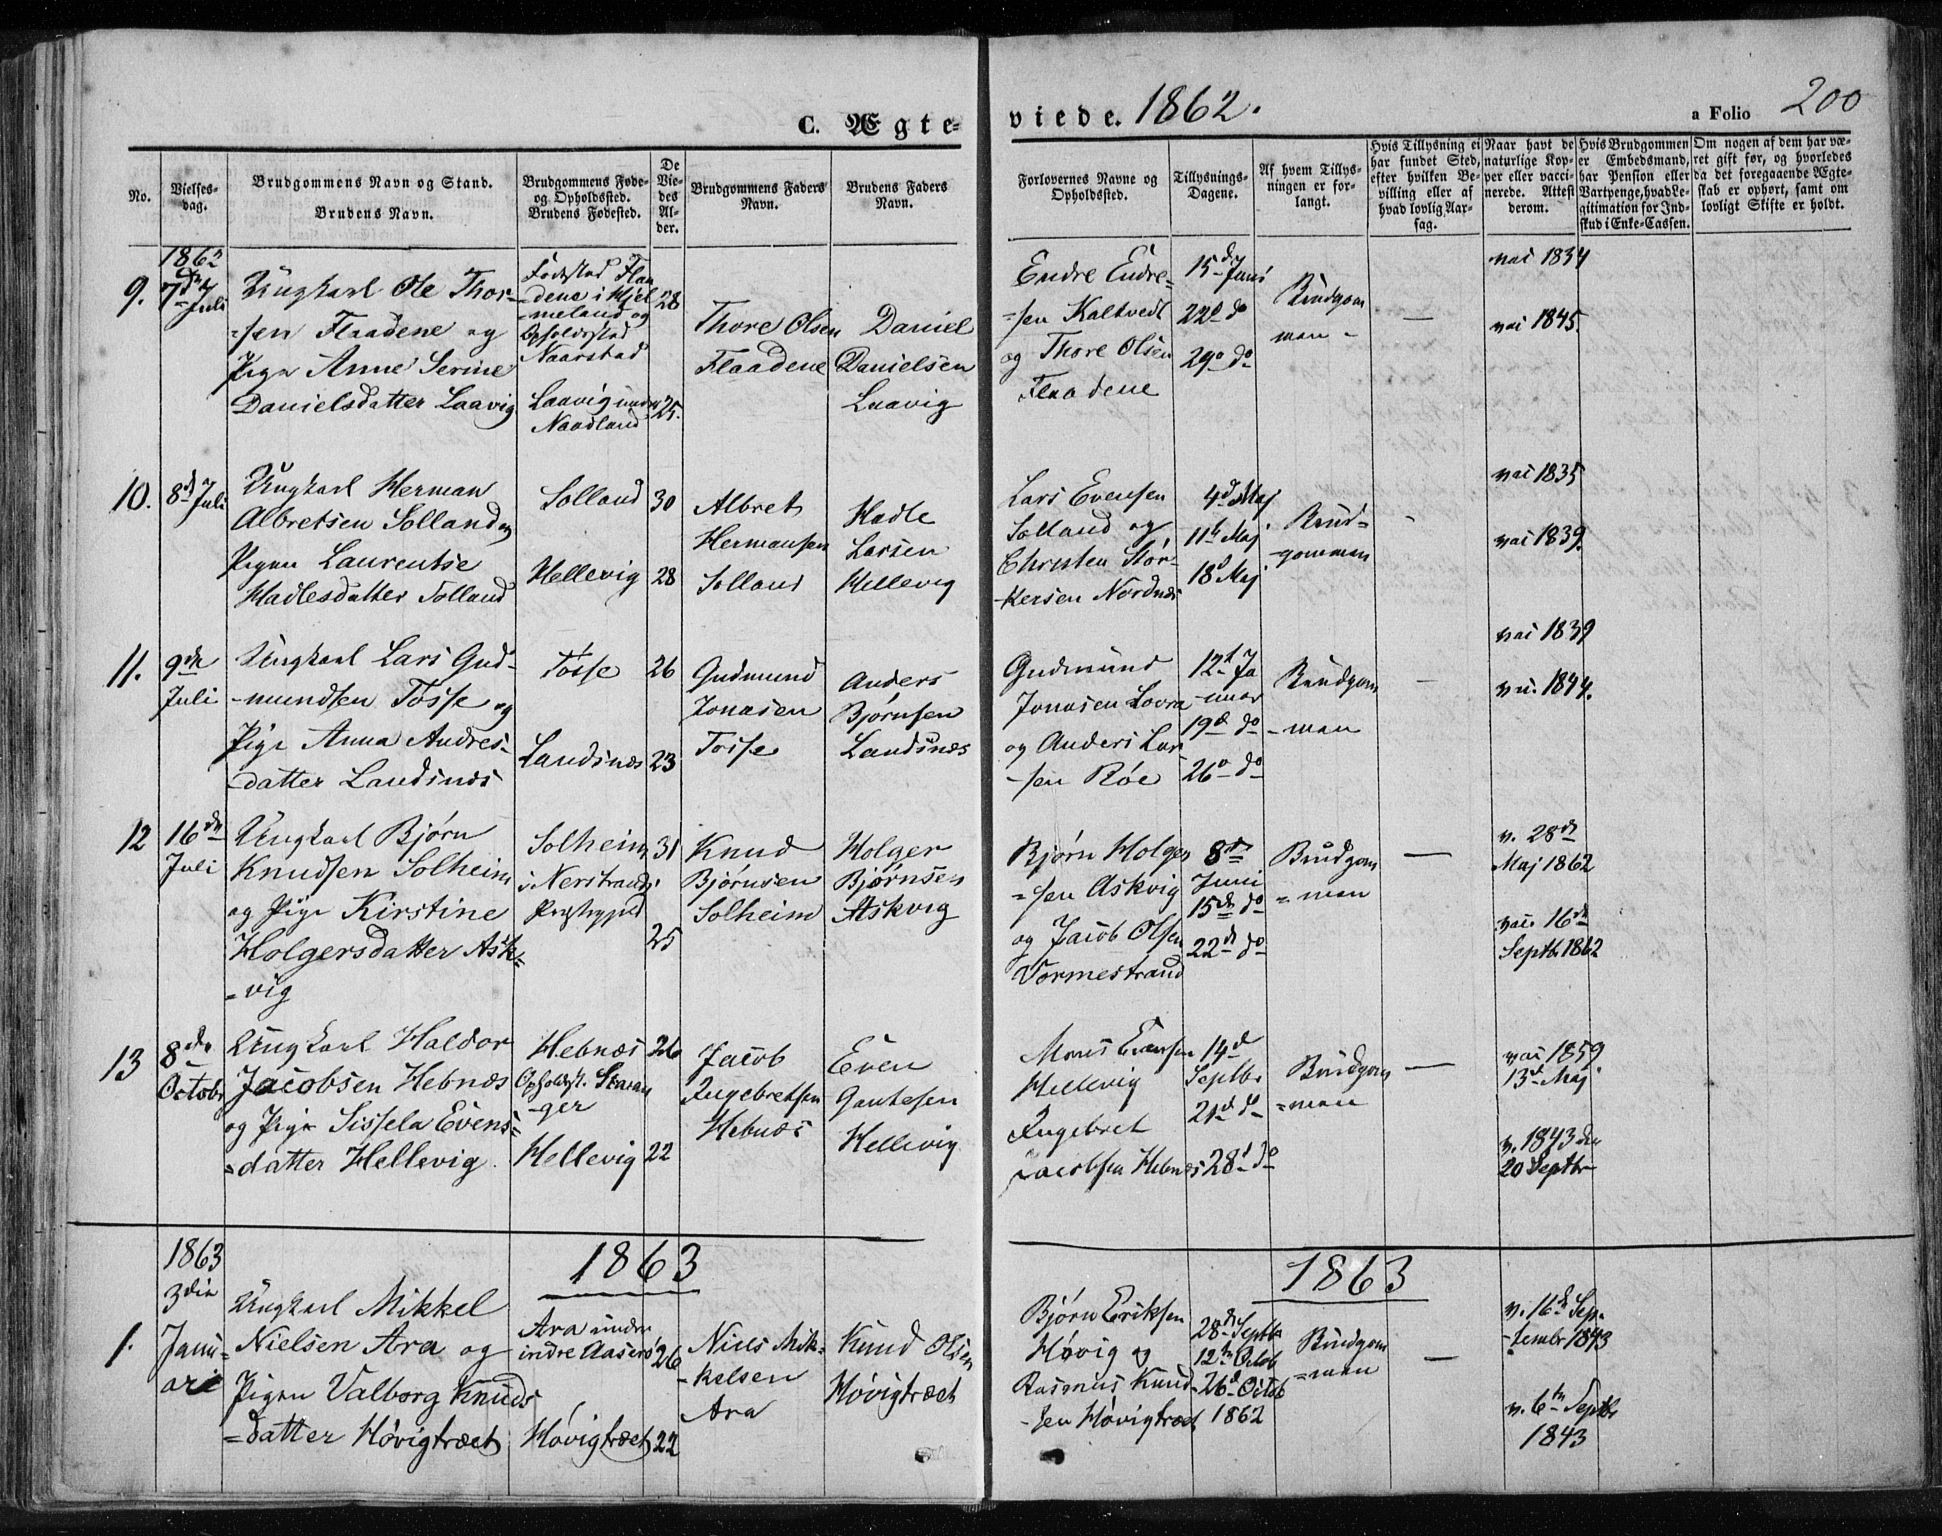 C. Ægte-
viede. 1862.
a Folio 200
No.
Vielses-
dag.
Brudgommens Navn og Stand.
Brudens Navn.
Brudgommens Føde-
og Opholdssted.
Brudens Fødested.
De
Vie-
des
Al-
der.
Brudgommens Faders
Navn.
Brudens Faders
Navn.
Forlovernes Navne og
Opholdssted.
Tillysnings-
Dagene.
Af hvem Tillys-
ningen er for-
langt.
Hvis Tillysning ei
har fundet Sted,
efter hvilken Be-
villing eller af
hvad lovlig Aar-
sag.
Naar havt de
naturlige Kop-
per eller vacci-
nerede. Attest
derom.
Hvis Brudgommen
er Embedsmand,
har Pension eller
Vartpenge, hvad Le-
gitimation for Ind-
skud i Enke-Cassen.
Om nogen af dem har væ-
ret gift før, og hvorledes
da det foregaaende Ægte-
skab er ophørt, samt om
lovligt Skifte er holdt.
9.
1862
7de
Juli
Ungkarl Ole Thor-
=sen Flaadene og
Pige Anne Serine
Danielsdatter Laavig
Fødestad Flaa
-dene i Hjel
=meland og
Opholdsstad
Naarstad
Laavig under
Naadland
28
25.
Thore Olsen
Flaadene
Daniel
Danielsen
Laavig
Endre Endre=
=sen Kaltvedt
og Thore Olsen
Flaadene
15d Juni
22d do
29d do
Brudgom
men -
—
vai 1834
vai 1845.
10.
8d Juli
Ungkarl Herman
Albretsen Solland og
Pigen Laurentse
Hadlesdatter Solland
Solland
Hellevig
30
28
Albret
Hermansen
Solland
Hadle
Larsen
Hellevig
Lars Evensen
Solland og
Christen Stør-
-kersen Nordnæs
4d Maj
11te Maj
18d Maj
Brud=
-gommen
-
vai 1835
vai 1839.
11.
9de
Juli
Ungkarl Lars Gud-
-mundsen Tøsse og
Pige Anna Andres-
datter Landsnæs
Tøsse
Landsnæs
26
23
Gudmund
Jonasen
Tøsse
Anders
Bjørnsen
Landsnæs
Gudmund
Jonasen Lovra
og Anders Lar
-sen Røe
12d Ja
-nuar
19d do
26d do
Brudgom
-men
—
vai 1839
va. 1844.
12
16de
Juli
Ungkarl Bjørn
Knudsen Solheim
og Pige Kirstine
Holgersdatter Ask=
=vig
Solheim
i Nerstrands
Prestegjeld
31
25
Knud
Bjørnsen
Solheim
Holger
Bjørnsen
Askvig
Bjørn Holger
=sen Askvig
og Jacob Olsen
Vormestrand
8de
Juni
15de do
22de do
Brudgom
=men
—
v. 28de
Maj 1862
vai. 16de
Septb. 1862
13
8de
Octobr
Ungkarl Haldor
Jacobsen Hebnæs
og Pige Sissela Evens=
=datter Hellevig.
Hebnæs
Opholdst. Stavan
-ger
Hellevig
26
22
Jacob
Ingebretsen
Hebnæs
Even
Gautesen
Hellevig
Mons Evensen
Hellevig
Ingebret
Jacobsen Hebnæs
14d
Septbr
21d do
28d do
Brudgom
=men
—
vai 1859
13de Maj
v. 1843 den
20 Septbr
1863
1863
1.
1863
3die
Janu=
ari
Ungkarl Mikkel
Nielsen Ara og
Pigen Valborg Knuds
=datter Høvigtræet
Ara under
indre Aaserø
Høvigtræet
26
22
Niels Mik-
-kelsen
Ara
Knud Olsen
Høvigtræet
Bjørn Eriksen
Høvig og
Rasmus Knud-
-sen Høvigtræet
28de Septbr
12te Octob
26d Octob
1862
Brudgom
=men
—
v. 16de Sep-
-tembr 1843
v. 6te Septbr
1843